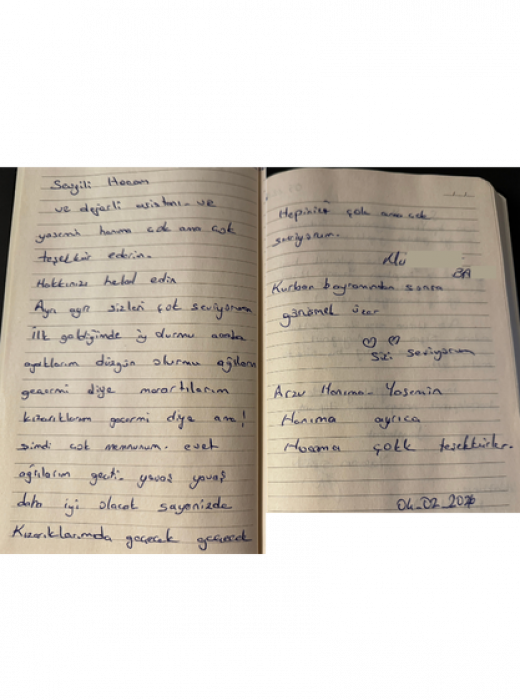 Sevgili Hocam
ve değerli asistanı - ve
yasemin hanıma çok ama çok
teşekkür ederim.
Hakkınızı helal edin
Ayrı ayrı sizleri çok seviyorum
İlk geldiğimde iy durmu acaba
ayaklarım düzgün olurmu ağrılarım
geçermi diye morartılarım
kızarıklarım geçermi diye ama!
şimdi çok memnunum. evet
ağrılarım geçti. yavaş yavaş
daha iyi olacak sayenizde
Kızarıklarımda geçecek geçecek
Hepinizi çok ama çok
seviyorum.
Kurban bayramından sonra
görüşmek üzere
♡ ♡
Sizi seviyorum
Arzu Hanıma - Yasemin
Hanıma ayrıca
Hocama çokk teşekkürler.
04-02-2026